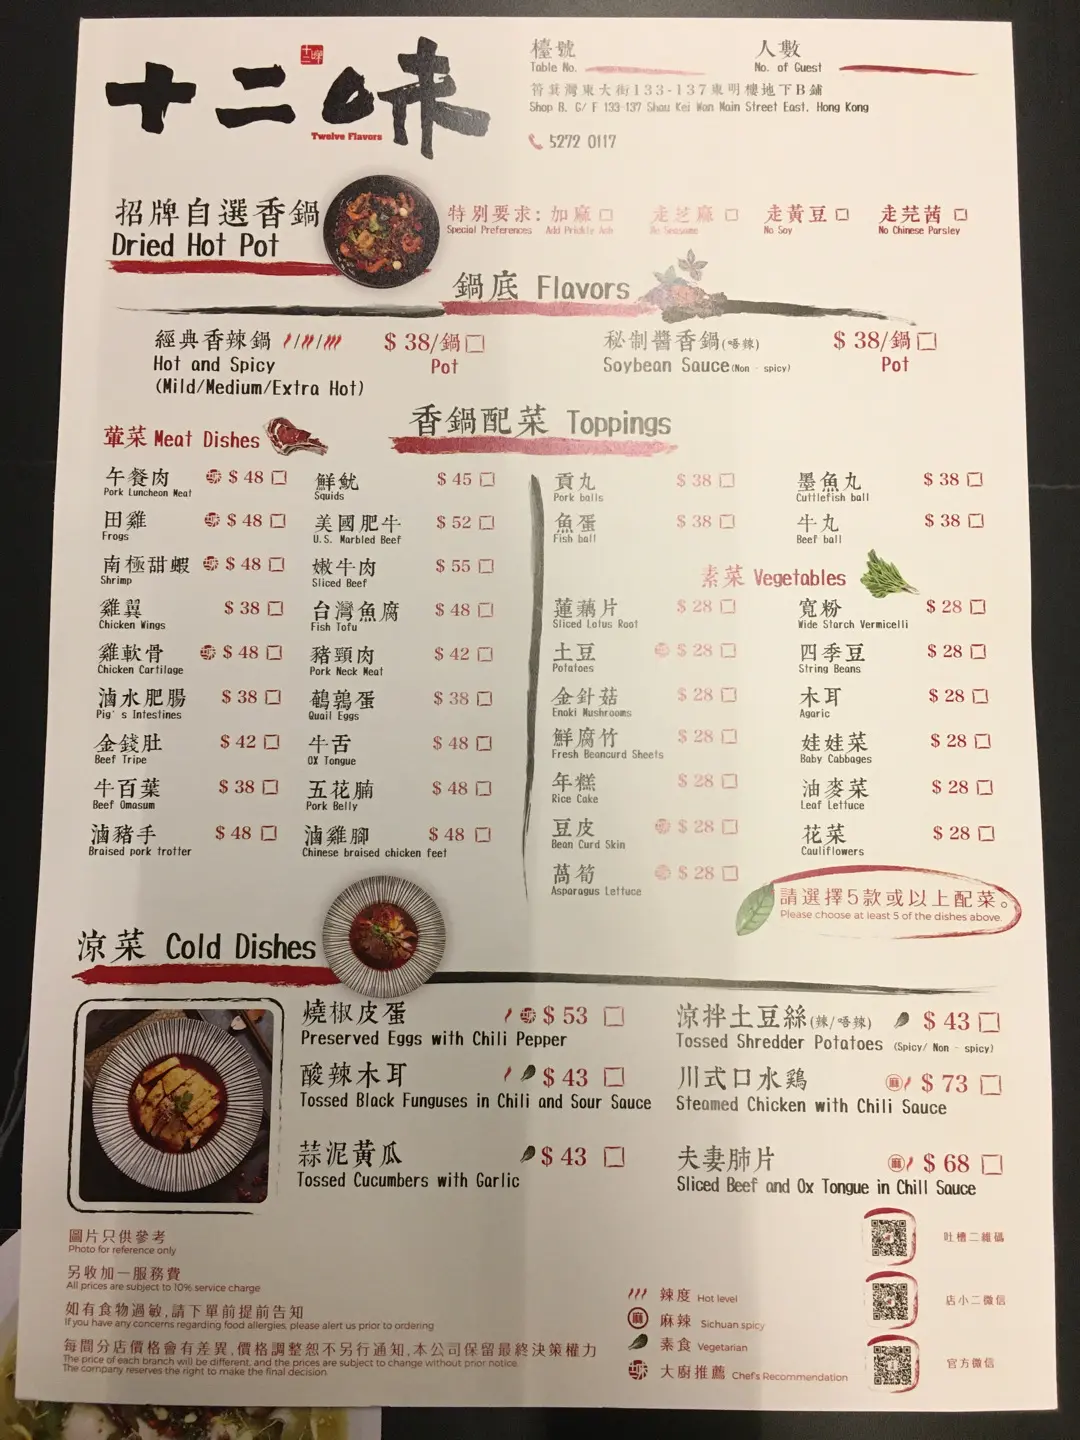 十二味
十二味
Twelve Flavors
檯號
Table No.
人數
No. of Guest
筲箕灣東大街133-137東明樓地下B鋪
Shop B, G/ F 133-137 Shau Kei Wan Main Street East, Hong Kong
5272 0117
招牌自選香鍋
Dried Hot Pot
特別要求: 加麻 □ 走芝麻 □ 走黃豆 □ 走芫茜 □
Special Preferences Add Prickly Ash No Seasame No Soy No Chinese Parsley
鍋底 Flavors
經典香辣鍋 $ 38/鍋 □
Hot and Spicy Pot
(Mild/Medium/Extra Hot)
秘制醬香鍋(唔辣) $ 38/鍋 □
Soybean Sauce(Non - spicy) Pot
香鍋配菜 Toppings
葷菜 Meat Dishes
午餐肉 $ 48 □
Pork Luncheon Meat
田雞 $ 48 □
Frogs
南極甜蝦 $ 48 □
Shrimp
雞翼 $ 38 □
Chicken Wings
雞軟骨 $ 48 □
Chicken Cartilage
滷水肥腸 $ 38 □
Pig's Intestines
金錢肚 $ 42 □
Beef Tripe
牛百葉 $ 38 □
Beef Omasum
滷豬手 $ 48 □
Braised pork trotter
鮮魷 $ 45 □
Squids
美國肥牛 $ 52 □
U.S. Marbled Beef
嫩牛肉 $ 55 □
Sliced Beef
台灣魚腐 $ 48 □
Fish Tofu
豬頸肉 $ 42 □
Pork Neck Meat
鵪鶉蛋 $ 38 □
Quail Eggs
牛舌 $ 48 □
OX Tongue
五花腩 $ 48 □
Pork Belly
滷雞腳 $ 48 □
Chinese braised chicken feet
貢丸 $ 38 □
Pork balls
魚蛋 $ 38 □
Fish ball
墨魚丸 $ 38 □
Cuttlefish ball
牛丸 $ 38 □
Beef ball
素菜 Vegetables
蓮藕片 $ 28 □
Sliced Lotus Root
土豆 $ 28 □
Potatoes
金針菇 $ 28 □
Enoki Mushrooms
鮮腐竹 $ 28 □
Fresh Beancurd Sheets
年糕 $ 28 □
Rice Cake
豆皮 $ 28 □
Bean Curd Skin
萵筍 $ 28 □
Asparagus Lettuce
寬粉 $ 28 □
Wide Starch Vermicelli
四季豆 $ 28 □
String Beans
木耳 $ 28 □
Agaric
娃娃菜 $ 28 □
Baby Cabbages
油麥菜 $ 28 □
Leaf Lettuce
花菜 $ 28 □
Cauliflowers
請選擇5款或以上配菜。
Please choose at least 5 of the dishes above.
涼菜 Cold Dishes
燒椒皮蛋 $ 53 □
Preserved Eggs with Chili Pepper
酸辣木耳 $ 43 □
Tossed Black Funguses in Chili and Sour Sauce
蒜泥黃瓜 $ 43 □
Tossed Cucumbers with Garlic
涼拌土豆絲(辣/唔辣) $ 43 □
Tossed Shredder Potatoes (Spicy/ Non - spicy)
川式口水鷄 麻 $ 73 □
Steamed Chicken with Chili Sauce
夫妻肺片 麻 $ 68 □
Sliced Beef and Ox Tongue in Chill Sauce
圖片只供參考
Photo for reference only
另收加一服務費
All prices are subject to 10% service charge
如有食物過敏,請下單前提前告知
If you have any concerns regarding food allergies, please alert us prior to ordering
每間分店價格會有差異,價格調整恕不另行通知,本公司保留最終決策權力
The price of each branch will be different, and the prices are subject to change without prior notice.
The company reserves the right to make the final decision.
辣度 Hot level
麻 麻辣 Sichuan spicy
素食 Vegetarian
大廚推薦 Chef's Recommendation
吐槽二維碼
店小二微信
官方微信